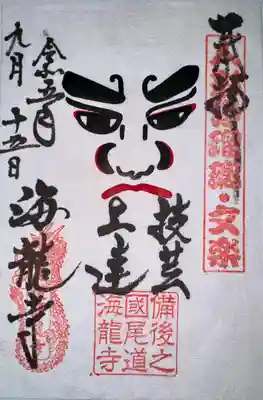 奉拝
浄瑠璃・文楽
技芸
上達
備後之
國尾道
海龍寺
令和五年
九月十五日
海龍寺